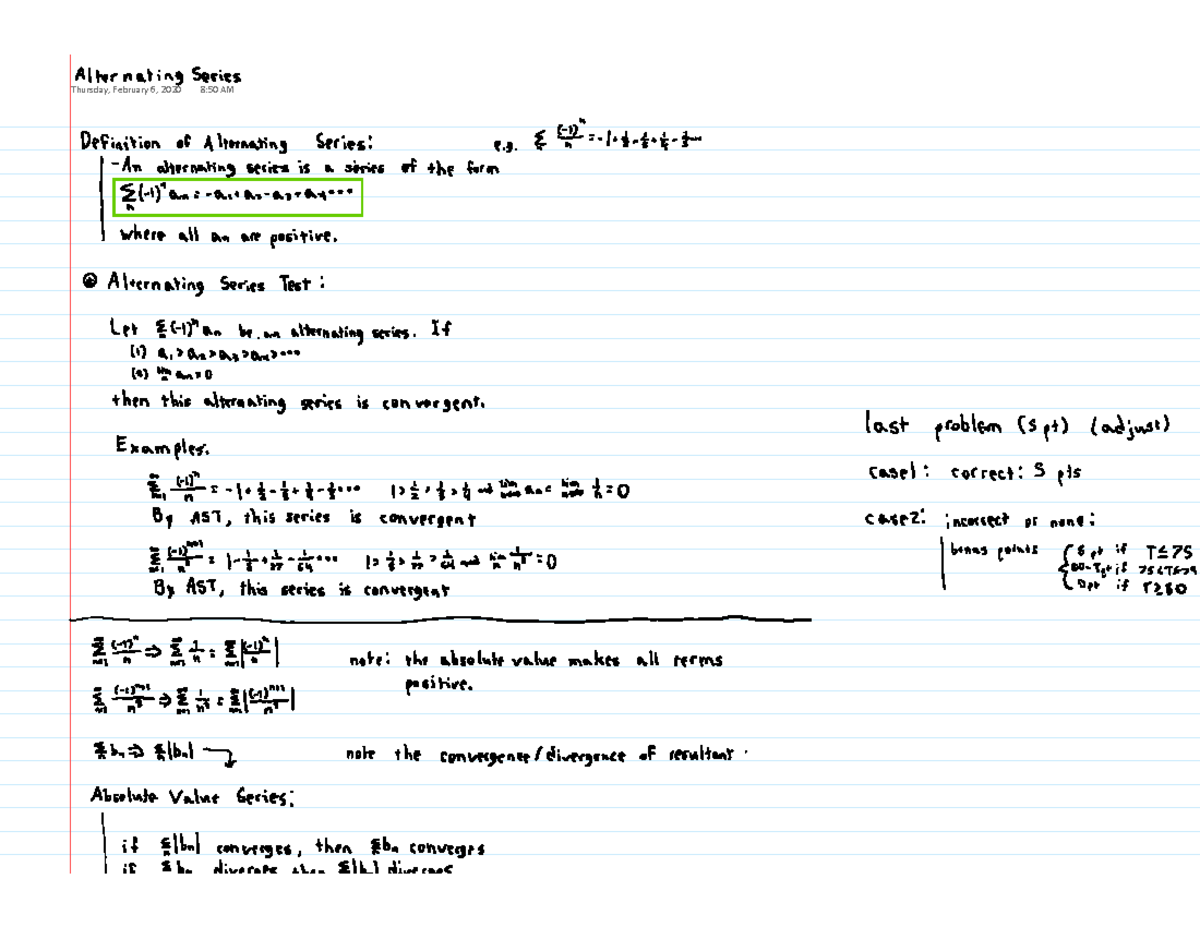 Alternating Series
Thursday, February 6, 2020 8:50 AM
Definition of Alternating Series:
e.g. Σ (-1)^n/n = -1+1/2-1/3+1/4-1/5...
-An alternating series is a series of the form
Σ_n (-1)^n an = -a1+a2-a3+a4...
where all an are positive.
Alternating Series Test:
Let Σ(-1)^n an be an alternating series. If
(1) a1>a2>a3>a4>...
(2) lim an=0
then this alternating series is convergent.
Examples:
Σ (-1)^n/n = -1+1/2-1/3+1/4-1/5... 1>1/2>1/3>1/4 and lim an = lim 1/n = 0
By AST, this series is convergent
Σ (-1)^(n+1)/n^3 = 1-1/8+1/27-1/64... 1>1/8>1/27>1/64 and lim 1/n^3 = 0
By AST, this series is convergent
last problem (5 pt) (adjust)
case1: correct: 5 pts
case2: incorrect or none:
bonus points { 5 pt if T≤75
80-T pt if 75<T≤79
0pt if T≥80
Σ (-1)^n/n ⇒ Σ 1/n = Σ |(-1)^n/n|
note: the absolute value makes all terms
positive.
Σ (-1)^(n+1)/n^3 ⇒ Σ 1/n^3 = Σ |(-1)^(n+1)/n^3|
Σ bn ⇒ Σ|bn|
note the convergence/divergence of resultant
Absolute Value Series:
if Σ|bn| converges, then Σbn converges
if Σbn diverges then Σ|bn| diverges